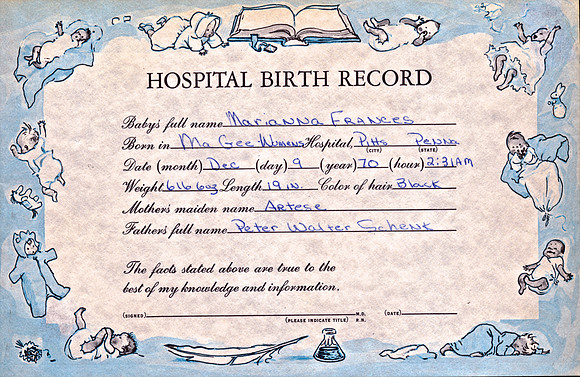 HOSPITAL BIRTH RECORD
Baby's full name Marianna Frances
Born in Ma Gee Womens Hospital, Pitts Penna
(CITY) (STATE)
Date (month) Dec (day) 9 (year) 70 (hour) 2:31AM
Weight 6lb 6oz Length 19 in. Color of hair Black
Mother's maiden name Artese
Father's full name Peter Walter Schenk
The facts stated above are true to the
best of my knowledge and information.
(SIGNED) M.D. (DATE)
(PLEASE INDICATE TITLE) R.N.